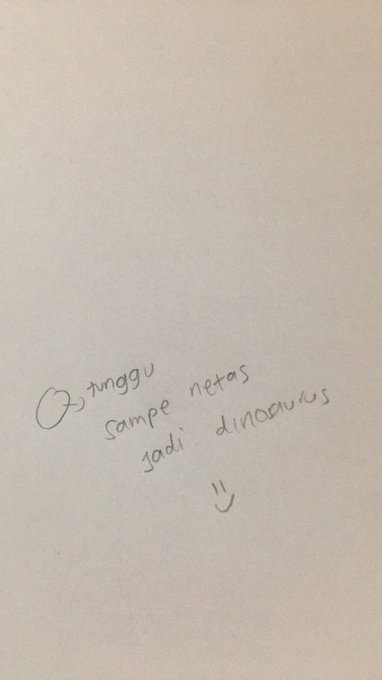 tunggu
sampe netas
jadi dinosaurus